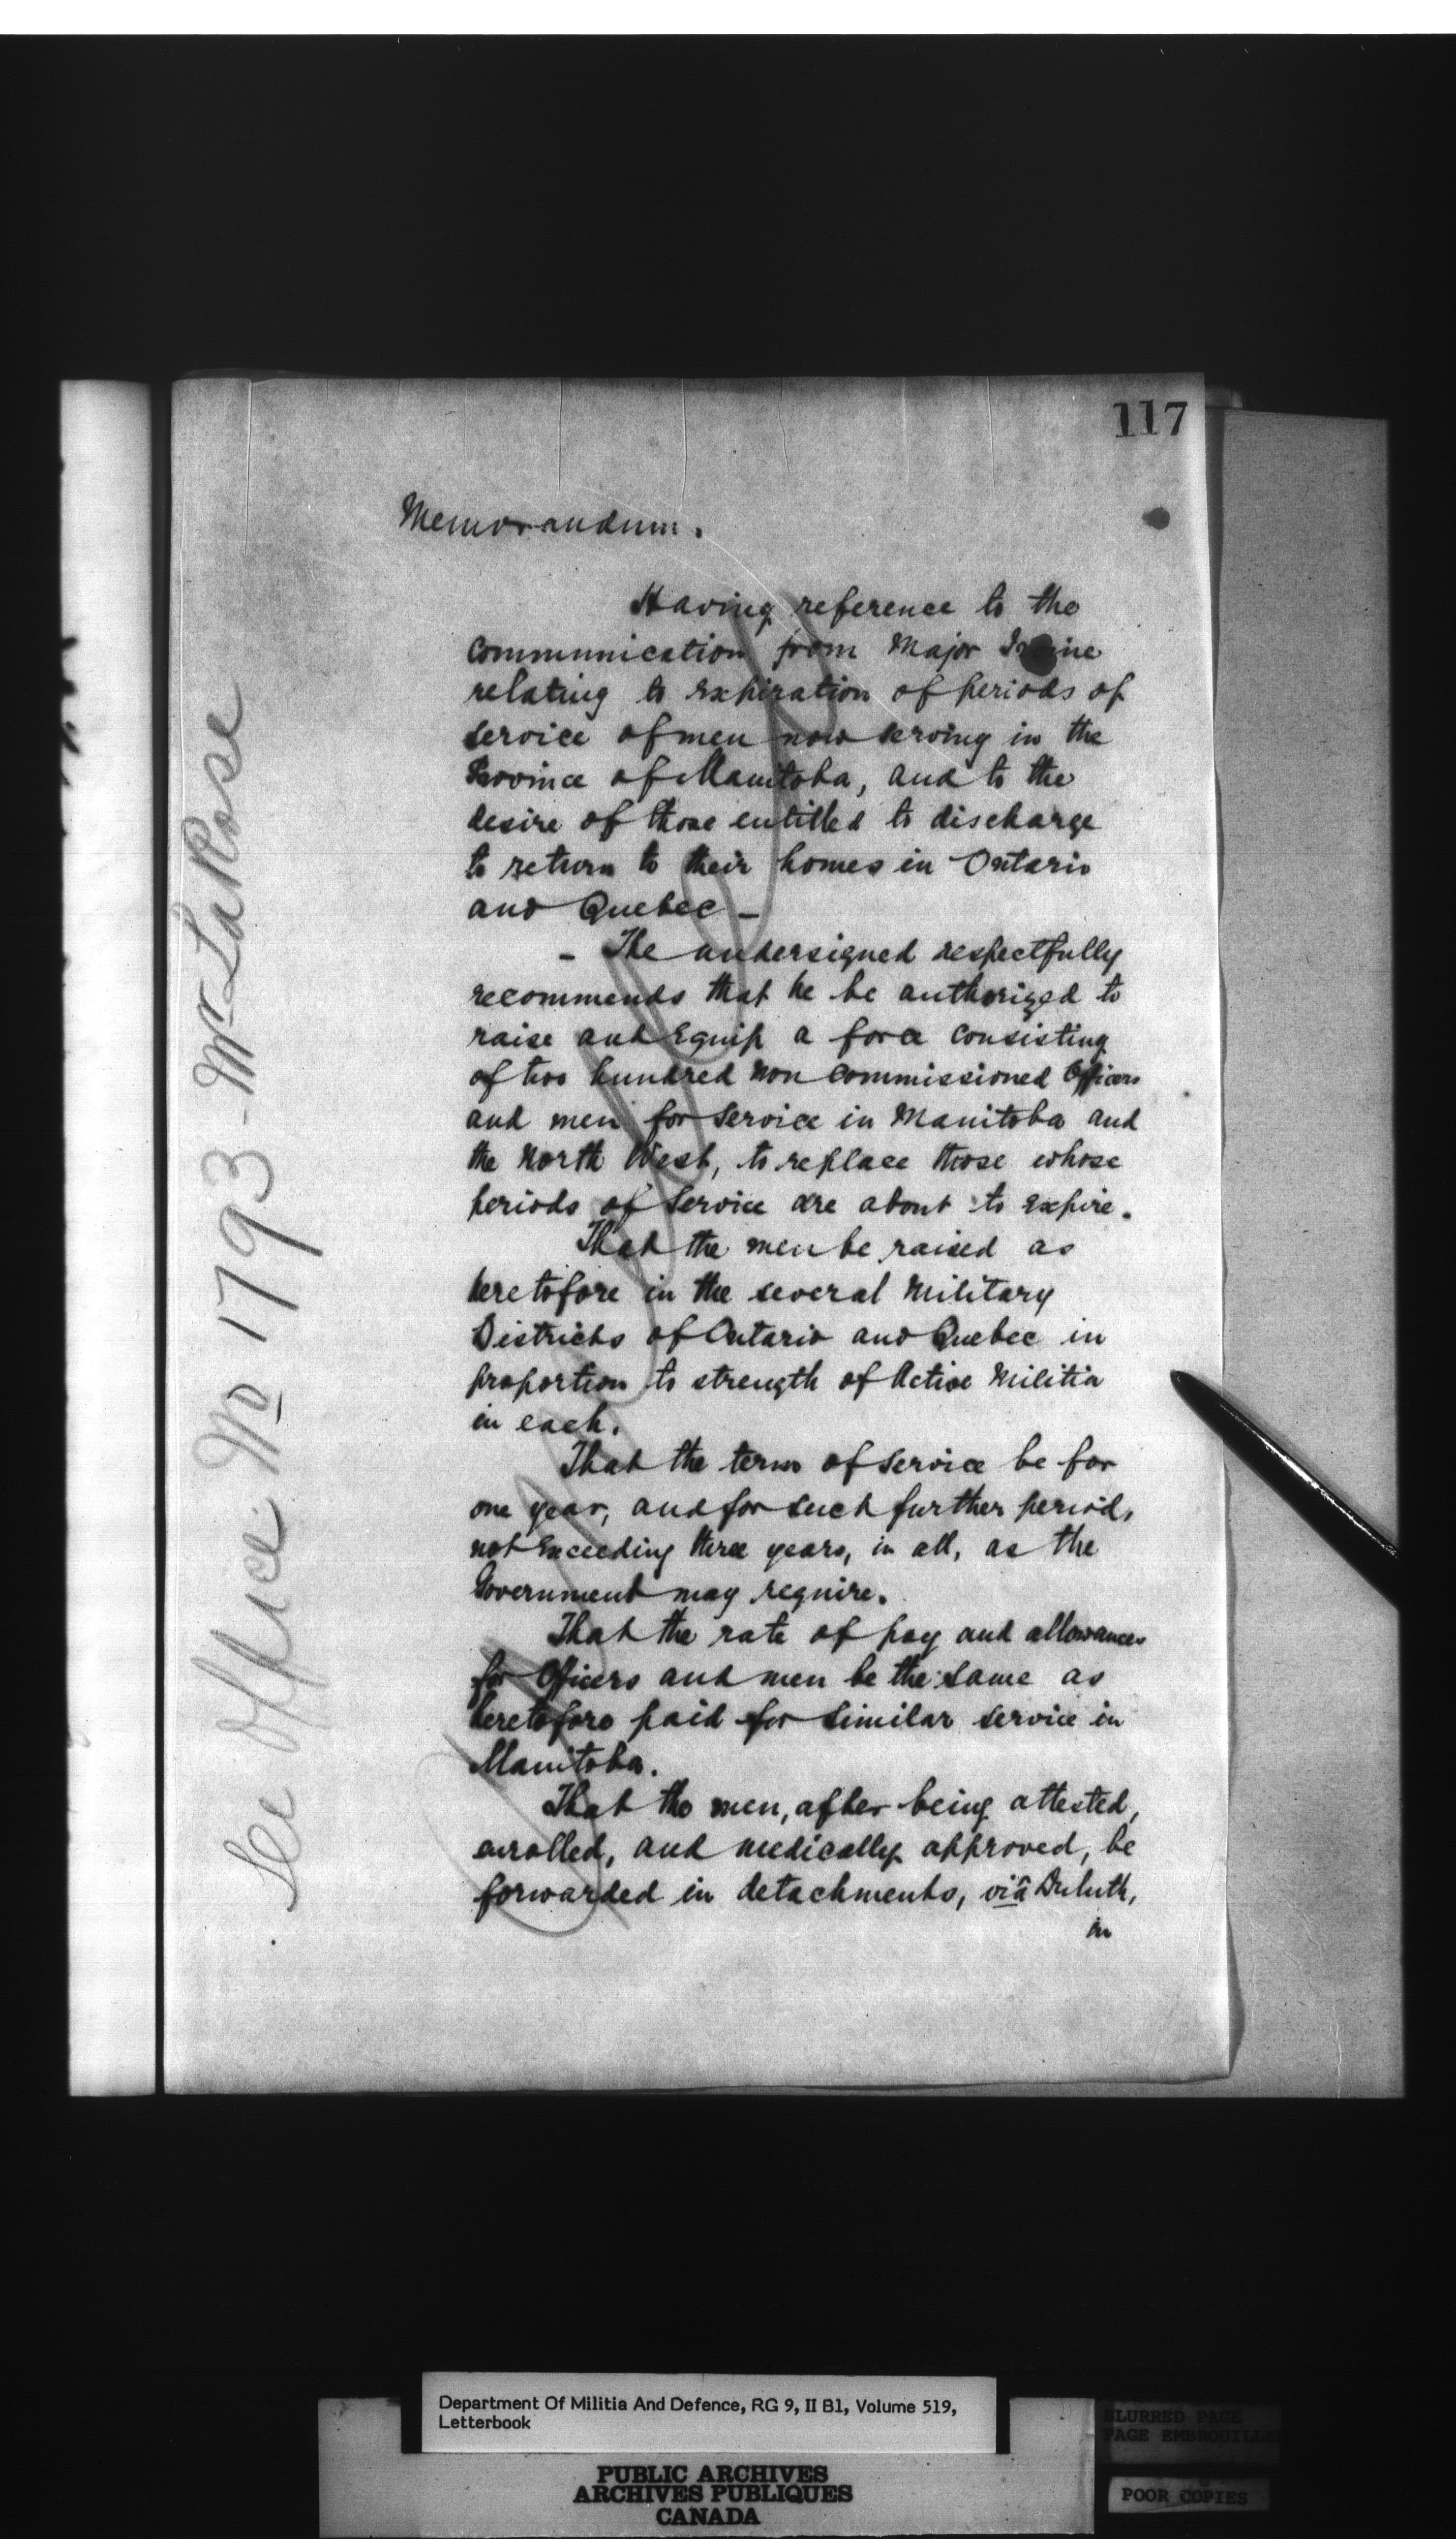 117
Memorandum.
Having reference to the
communication from Major Irvine
relating to expiration of periods of
service of men now serving in the
Province of Manitoba, and to the
desire of those entitled to discharge
to return to their homes in Ontario
and Quebec —
– The undersigned respectfully
recommends that he be authorized to
raise and equip a force consisting
of two hundred non commissioned officers
and men for service in Manitoba and
the North West, to replace those whose
periods of service are about to expire.
That the men be raised as
heretofore in the several Military
Districts of Ontario and Quebec in
proportion to strength of Active Militia
in each.
That the term of service be for
one year, and for such further period,
not exceeding three years, in all, as the
Government may require.
That the rate of pay and allowances
for Officers and men be the same as
heretofore paid for similar service in
Manitoba.
That the men, after being attested,
enrolled, and medically approved, be
forwarded in detachments, viâ Duluth,
in
See Office No 1793 - Mr LaRose
Department Of Militia And Defence, RG 9, II B1, Volume 519,
Letterbook
PUBLIC ARCHIVES
ARCHIVES PUBLIQUES
CANADA
BLURRED PAGE
PAGE EMBROUILLE
POOR COPIES